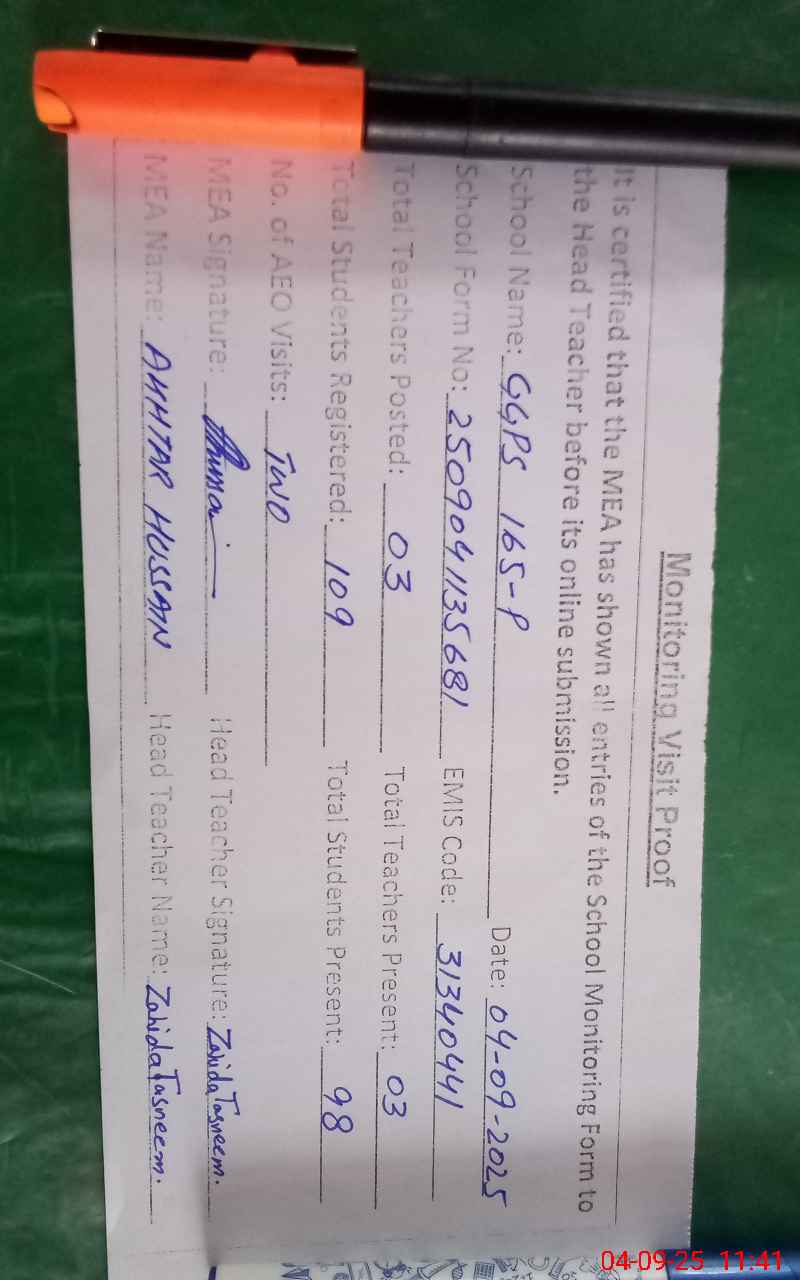 Monitoring Visit Proof
It is certified that the MEA has shown all entries of the School Monitoring Form to
the Head Teacher before its online submission.
School Name: GGPS 165-P Date: 04-09-2025
School Form No: 2509041135681 EMIS Code: 31340441
Total Teachers Posted: 03 Total Teachers Present: 03
Total Students Registered: 109 Total Students Present: 98
No. of AEO Visits: TWO
MEA Signature: Head Teacher Signature: Zahida Tasneem.
MEA Name: AKHTAR HUSSAIN Head Teacher Name: Zahida Tasneem.
04-09-25 11:41